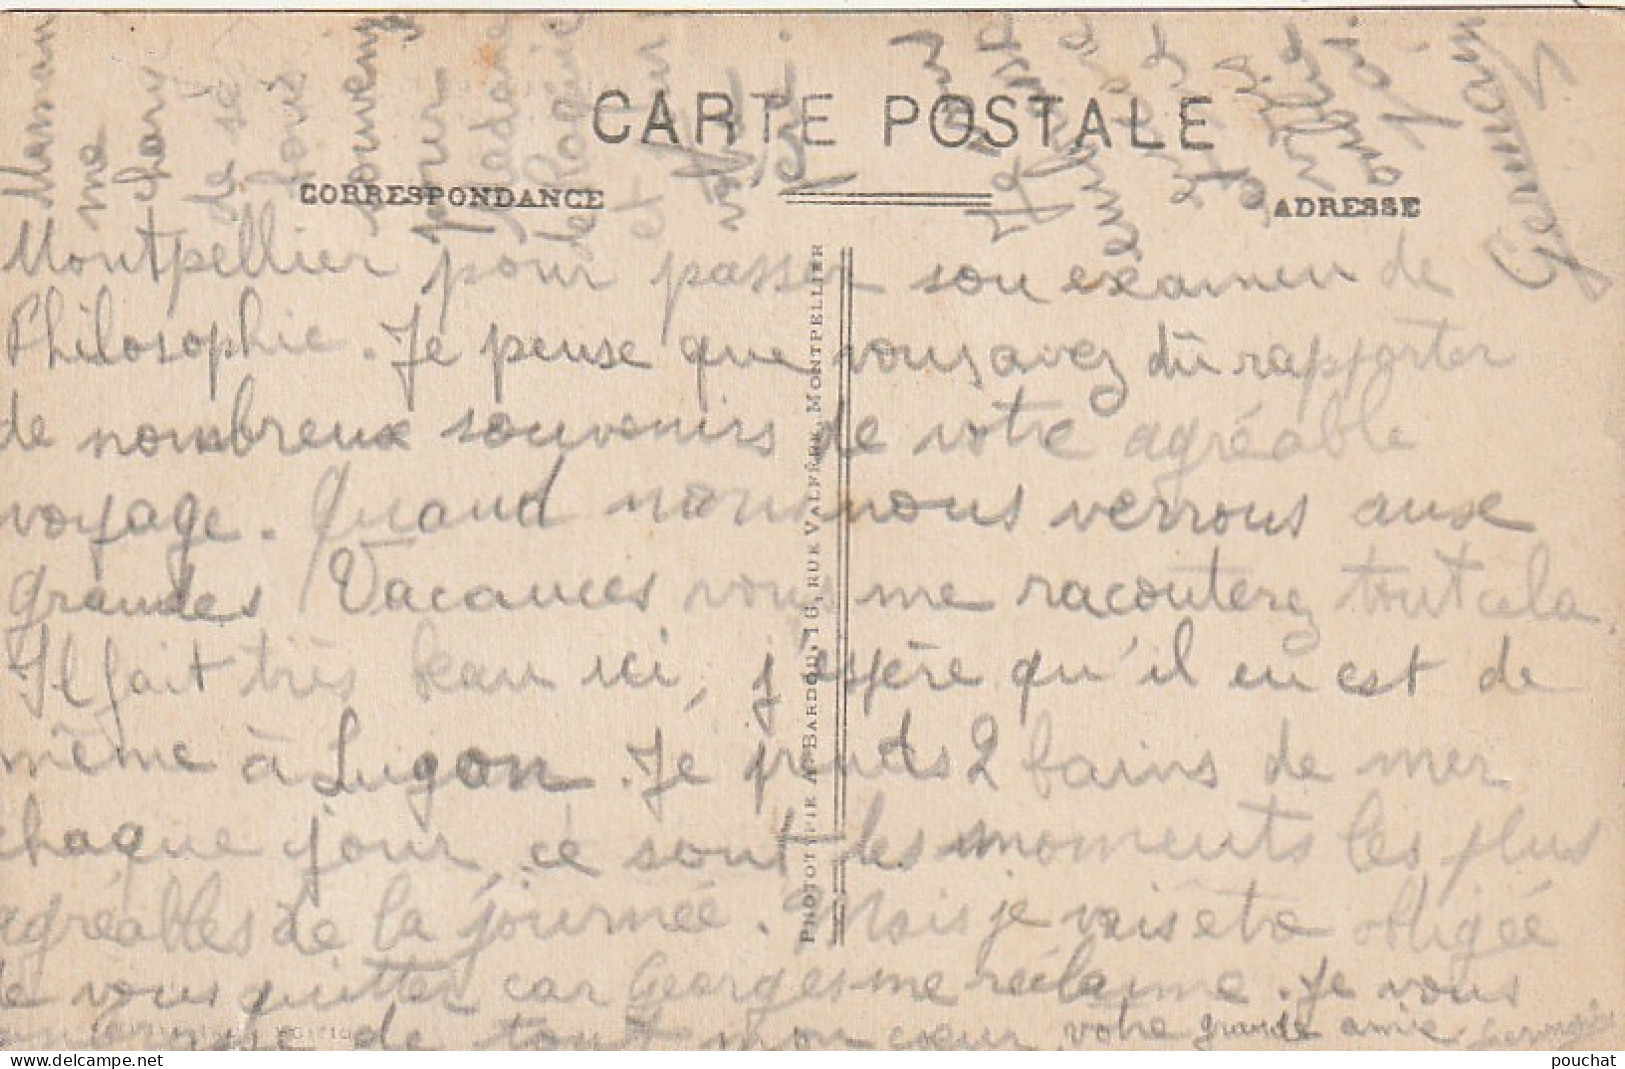 CARTE POSTALE
CORRESPONDANCE
ADRESSE
Montpellier pour passer son examen de
Philosophie. Je pense que vous avez dû rapporter
de nombreux souvenirs de votre agréable
voyage. Quand nous nous verrons aux
grandes Vacances vous me raconterez tout cela.
Il fait très beau ici, j'espère qu'il en est de
même à Lugon. Je prends 2 bains de mer
chaque jour, ce sont les moments les plus
agréables de la journée. Mais je vais être obligée
de vous quitter car Georges me réclame. Je vous
embrasse de tout mon cœur votre grande amie Germaine
Maman
me
charge
de ses
bons
souvenirs
pour
Madame
et
votre
ici.
Germain
PHOTOTYPIE A. BARDOU, 16, RUE VALFÈRE, MONTPELLIER
pouchat